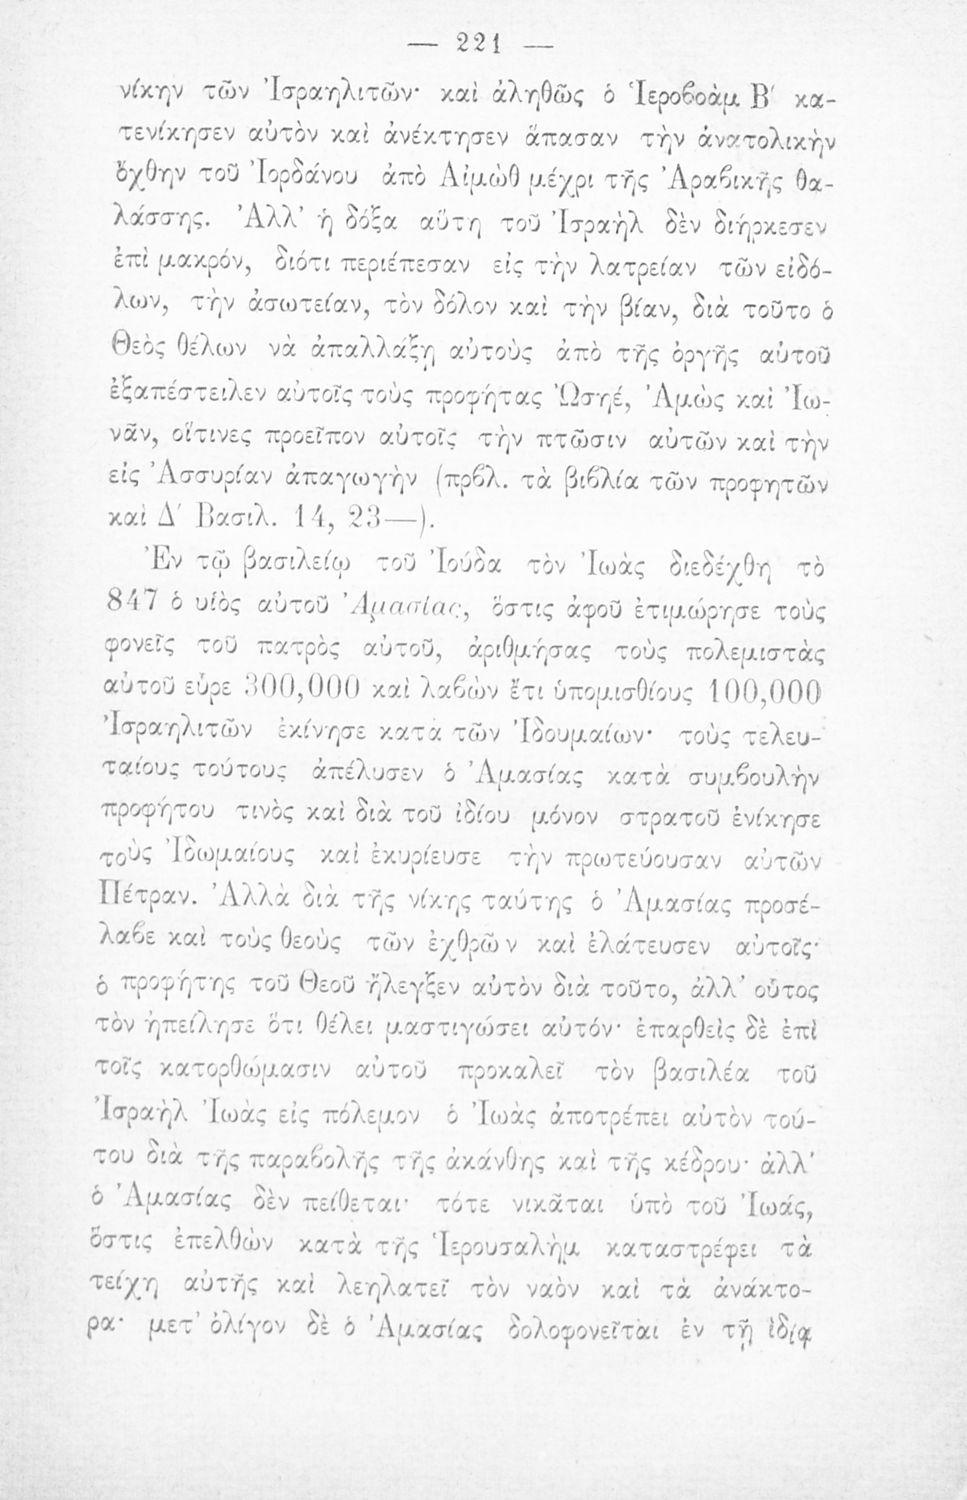 — 221 —
νίκην τῶν Ἰσραηλιτῶν· καὶ ἀληθῶς ὁ Ἱεροβοὰμ Β΄ κα-
τενίκησεν αὐτὸν καὶ ἀνέκτησεν ἅπασαν τὴν ἀνατολικὴν
ὄχθην τοῦ Ἰορδάνου ἀπὸ Αἰμὼθ μέχρι τῆς Ἀραβικῆς θα-
λάσσης. Ἀλλ' ἡ δόξα αὕτη τοῦ Ἰσραὴλ δὲν διήρκεσεν
ἐπὶ μακρόν, διότι περιέπεσαν εἰς τὴν λατρείαν τῶν εἰδό-
λων, τὴν ἀσωτείαν, τὸν δόλον καὶ τὴν βίαν, διὰ τοῦτο ὁ
Θεὸς θέλων νὰ ἀπαλλάξῃ αὐτοὺς ἀπὸ τῆς ὀργῆς αὐτοῦ
ἐξαπέστειλεν αὐτοῖς τοὺς προφήτας Ὠσηέ, Ἀμὼς καὶ Ἰω-
νᾶν, οἵτινες προεῖπον αὐτοῖς τὴν πτῶσιν αὐτῶν καὶ τὴν
εἰς Ἀσσυρίαν ἀπαγωγὴν (πρβλ. τὰ βιβλία τῶν προφητῶν
καὶ Δ΄ Βασιλ. 14, 23—).
Ἐν τῷ βασιλείῳ τοῦ Ἰούδα τὸν Ἰωὰς διεδέχθη τὸ
847 ὁ υἱὸς αὐτοῦ Ἀμασίας, ὅστις ἀφοῦ ἐτιμώρησε τοὺς
φονεῖς τοῦ πατρὸς αὐτοῦ, ἀριθμήσας τοὺς πολεμιστὰς
αὐτοῦ εὗρε 300,000 καὶ λαβὼν ἔτι ὑπομισθίους 100,000
Ἰσραηλιτῶν ἐκίνησε κατὰ τῶν Ἰδουμαίων· τοὺς τελευ-
ταίους τούτους ἀπέλυσεν ὁ Ἀμασίας κατὰ συμβουλὴν
προφήτου τινὸς καὶ διὰ τοῦ ἰδίου μόνον στρατοῦ ἐνίκησε
τοὺς Ἰδωμαίους καὶ ἐκυρίευσε τὴν πρωτεύουσαν αὐτῶν
Πέτραν. Ἀλλὰ διὰ τῆς νίκης ταύτης ὁ Ἀμασίας προσέ-
λαβε καὶ τοὺς θεοὺς τῶν ἐχθρῶν καὶ ἐλάτευσεν αὐτοῖς·
ὁ προφήτης τοῦ Θεοῦ ἤλεγξεν αὐτὸν διὰ τοῦτο, ἀλλ' οὗτος
τὸν ἠπείλησε ὅτι θέλει μαστιγώσει αὐτόν· ἐπαρθεὶς δὲ ἐπὶ
τοῖς κατορθώμασιν αὐτοῦ προκαλεῖ τὸν βασιλέα τοῦ
Ἰσραὴλ Ἰωὰς εἰς πόλεμον ὁ Ἰωὰς ἀποτρέπει αὐτὸν τού-
του διὰ τῆς παραβολῆς τῆς ἀκάνθης καὶ τῆς κέδρου· ἀλλ'
ὁ Ἀμασίας δὲν πείθεται· τότε νικᾶται ὑπὸ τοῦ Ἰωάς,
ὅστις ἐπελθὼν κατὰ τῆς Ἱερουσαλὴμ καταστρέφει τὰ
τείχη αὐτῆς καὶ λεηλατεῖ τὸν ναὸν καὶ τὰ ἀνάκτο-
ρα· μετ' ὀλίγον δὲ ὁ Ἀμασίας δολοφονεῖται ἐν τῇ ἰδίᾳ